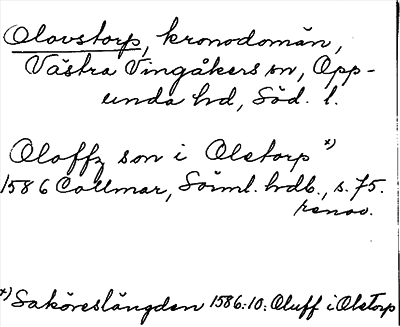 Olovstorp, kronodomän,
Västra Vingåkers sn, Opp-
unda hd, Söd. l.
Oloffz son i Olstorp *)
1586 Collmar, Sörml. hdb., s. 75.
renov.
*) Saköreslängden 1586:10: Oluff i Olstorp